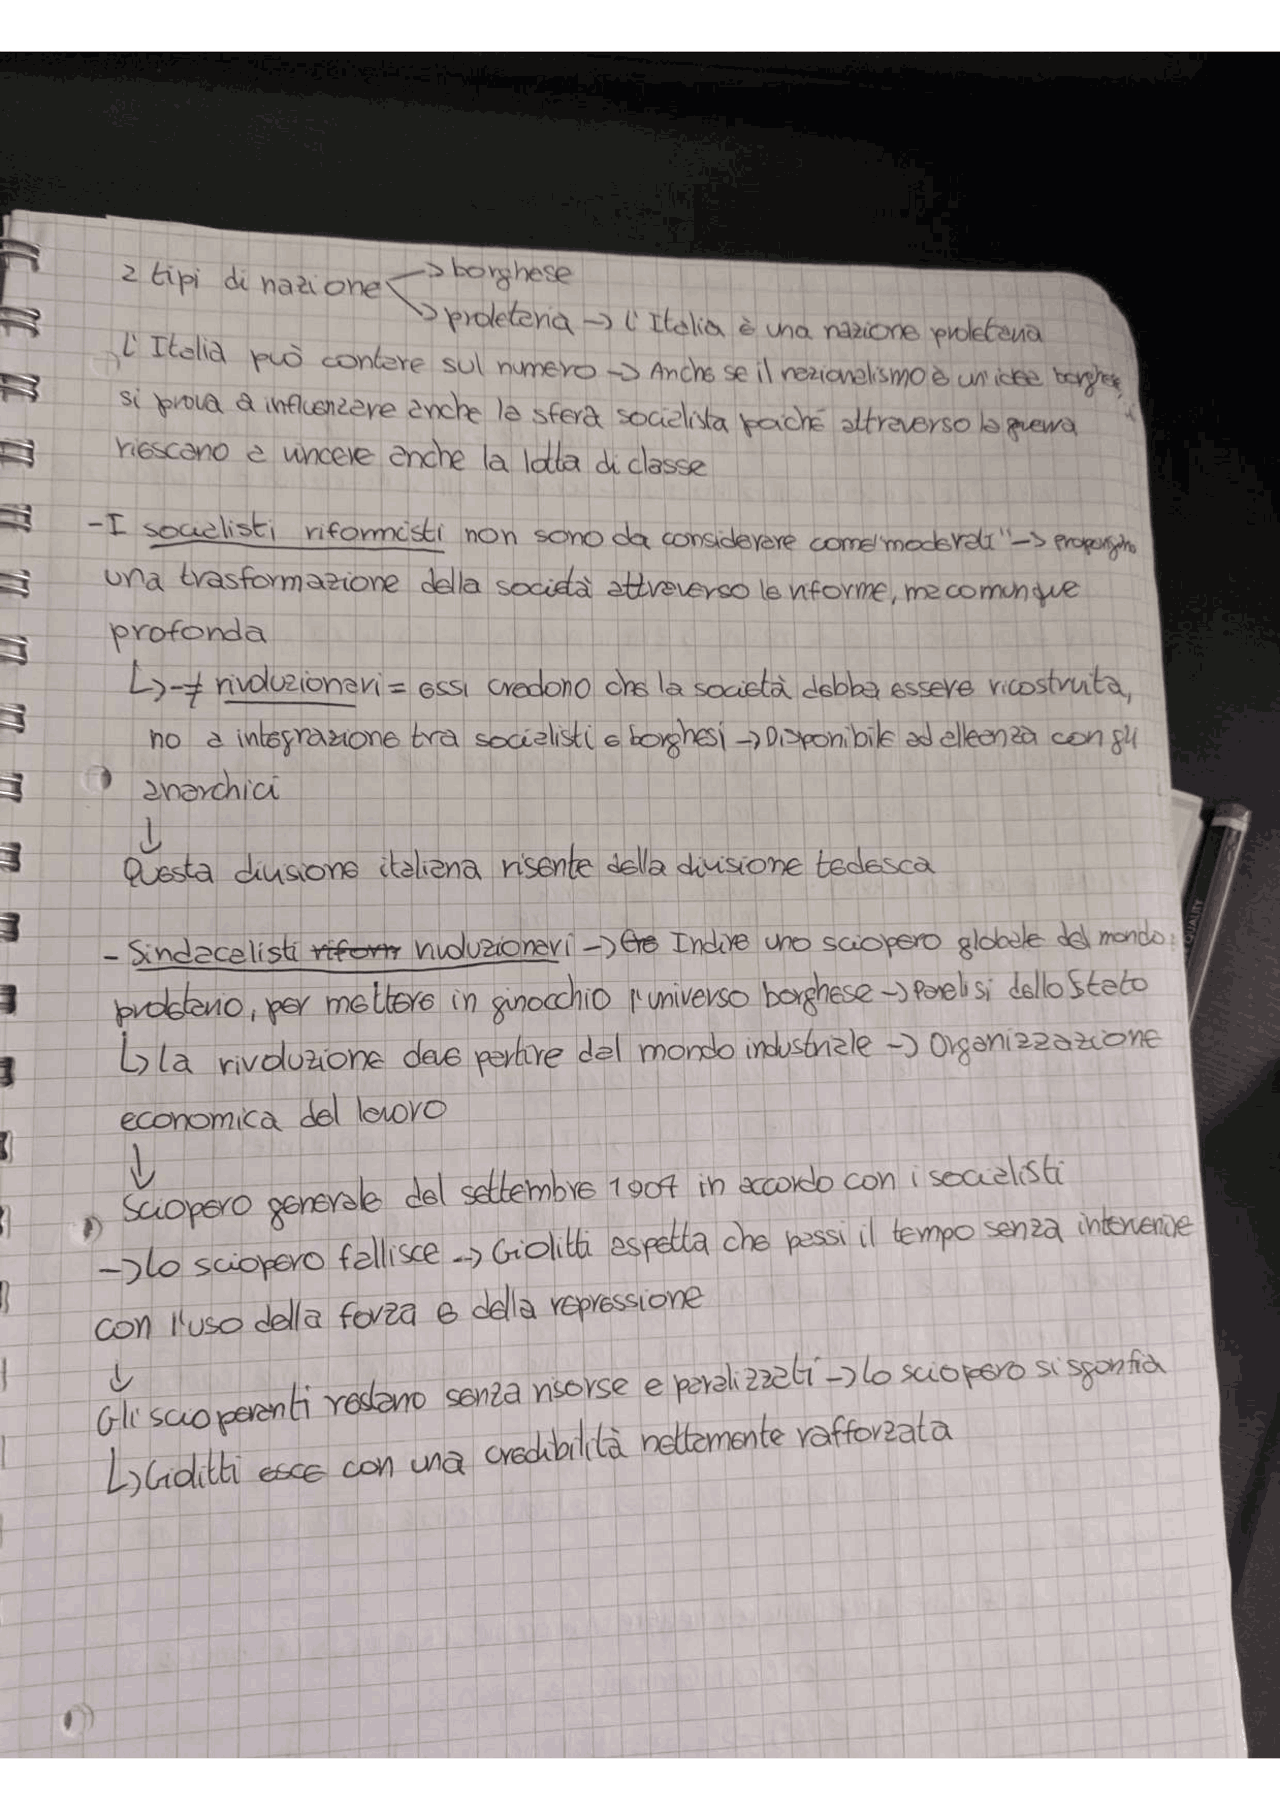 2 tipi di nazione -> borghese
-> proletaria -> l'Italia è una nazione proletaria
L'Italia può contare sul numero -> Anche se il nazionalismo è un'idea borghese,
si prova a influenzare anche la sfera socialista poiché attraverso la guerra
riescano a vincere anche la lotta di classe
- I socialisti riformisti non sono da considerare come "moderati" -> propongono
una trasformazione della società attraverso le riforme, ma comunque
profonda
↳ -≠ rivoluzionari = essi credono che la società debba essere ricostruita,
no a integrazione tra socialisti e borghesi -> Disponibile ad alleanza con gli
anarchici
↓
Questa divisione italiana risente della divisione tedesca
- Sindacalisti riform rivoluzionari -> Indire uno sciopero globale del mondo
proletario, per mettere in ginocchio l'universo borghese -> Paralisi dello Stato
↳ La rivoluzione deve partire dal mondo industriale -> Organizzazione
economica del lavoro
↓
Sciopero generale del settembre 1904 in accordo con i socialisti
-> Lo sciopero fallisce -> Giolitti aspetta che passi il tempo senza intervenire
con l'uso della forza e della repressione
↓
Gli scioperanti restano senza risorse e paralizzati -> Lo sciopero si sgonfia
↳ Giolitti esce con una credibilità nettamente rafforzata
QUALITY